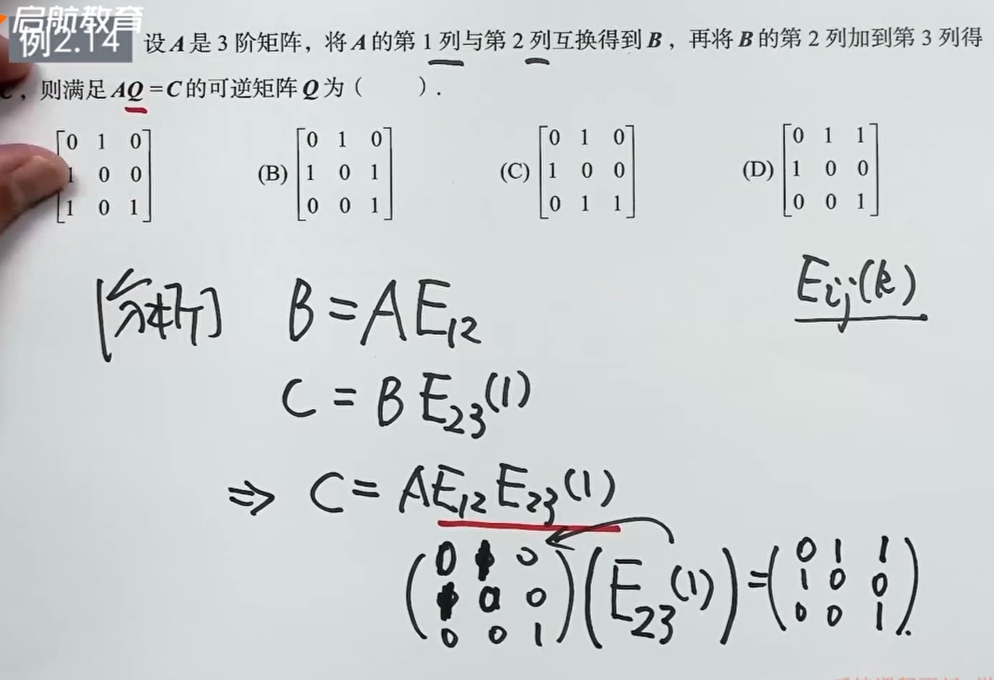 启航教育
例2.14 设A是3阶矩阵，将A的第1列与第2列互换得到B，再将B的第2列加到第3列得
C，则满足AQ=C的可逆矩阵Q为（ ）.
[0 1 0
1 0 0
1 0 1]
(B) [0 1 0
1 0 1
0 0 1]
(C) [0 1 0
1 0 0
0 1 1]
(D) [0 1 1
1 0 0
0 0 1]
[分析] B=AE₁₂
Eij(k)
C=BE₂₃(1)
⇒ C=AE₁₂E₂₃(1)
(0 1 0
1 0 0
0 0 1)(E₂₃(1))=(0 1 1
1 0 0
0 0 1).